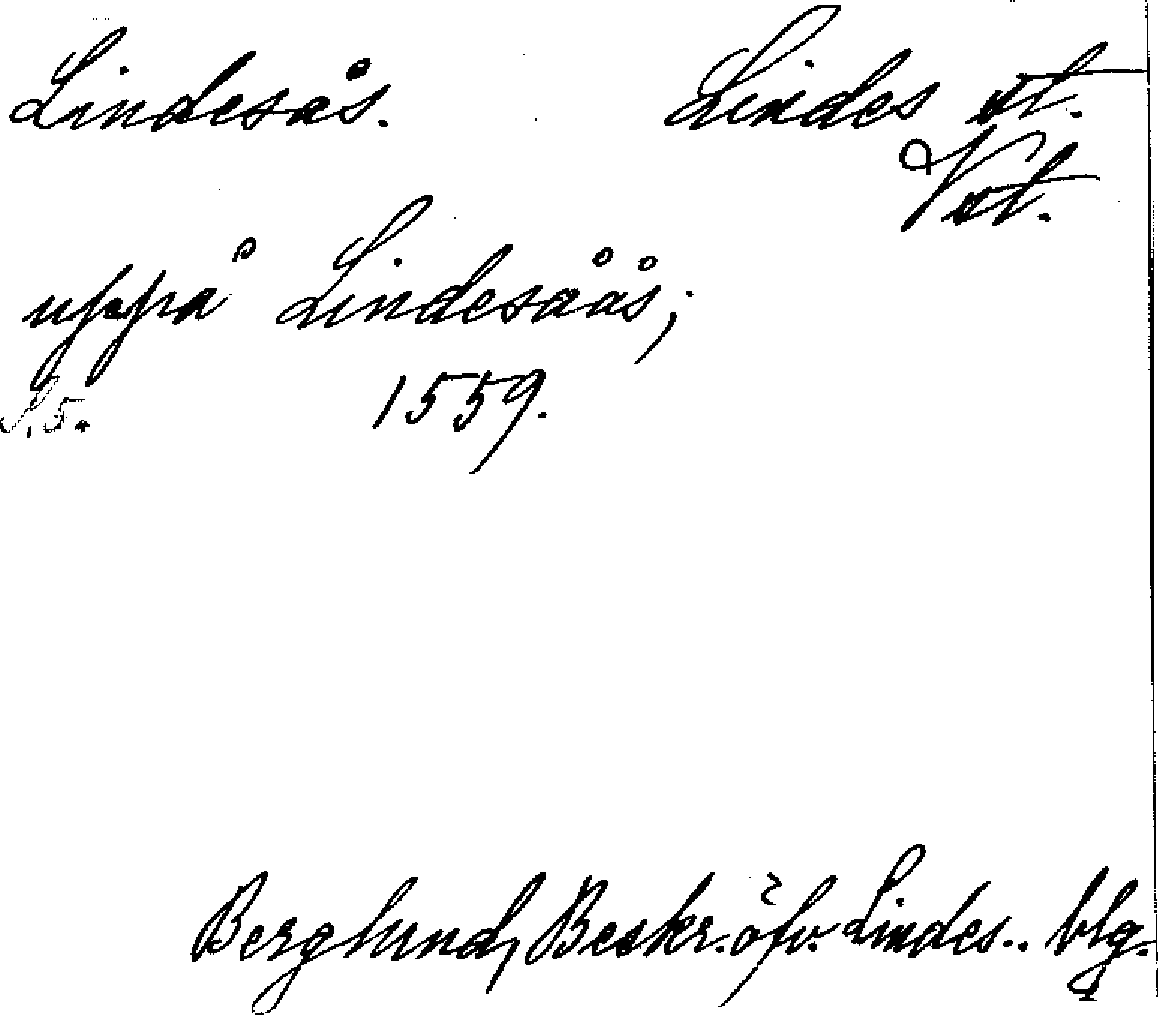 Lindesås. Lindes st.
Vst.
uppå Lindesåås;
S. 5. 1559.
Berglund, Beskr. öfv. Lindes.. blg.